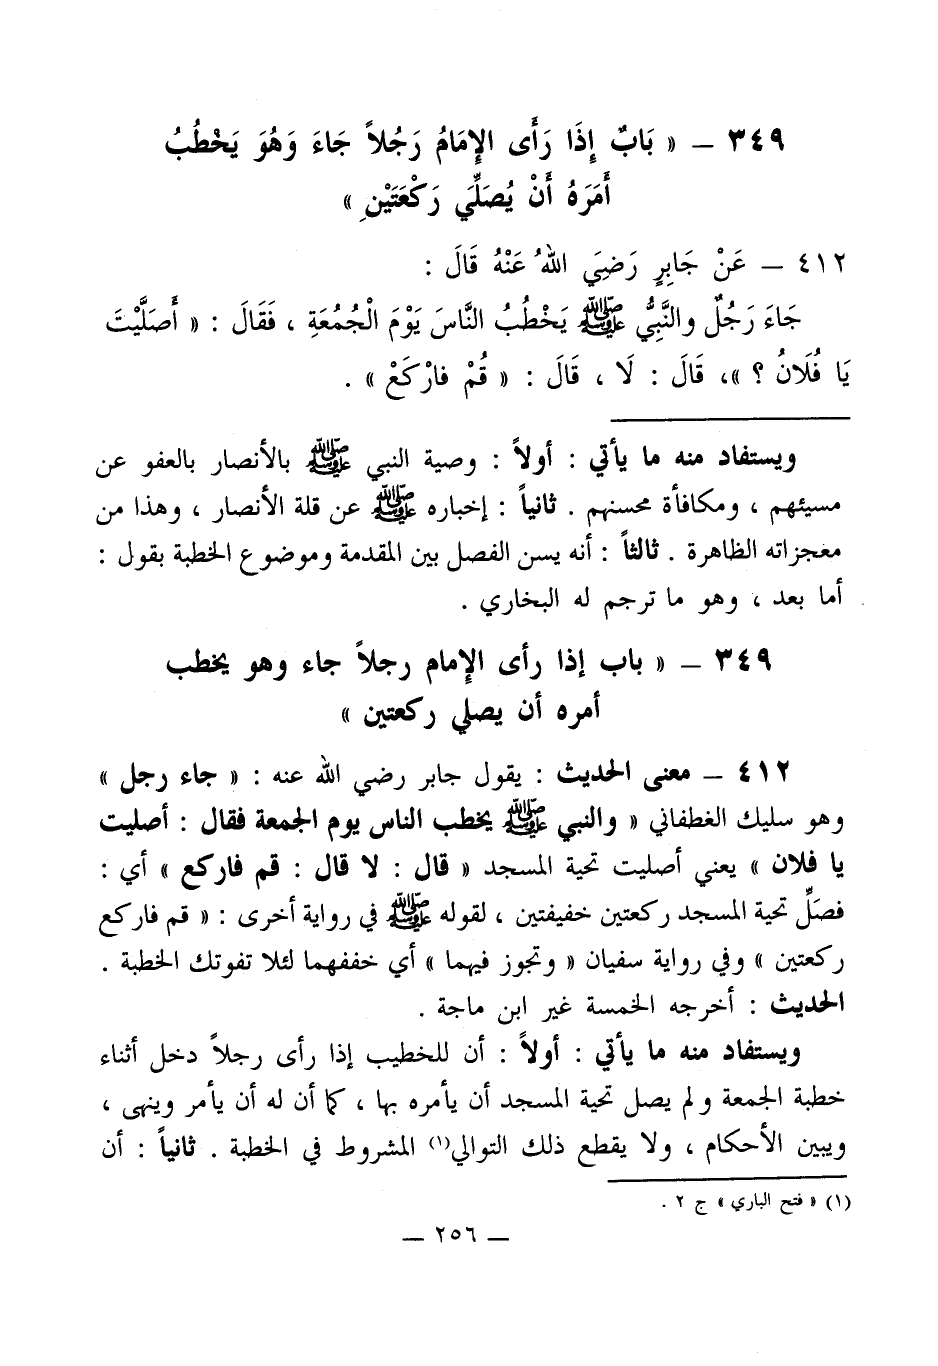 ٣٤٩ – « بَابٌ إِذَا رَأَى الإِمَامُ رَجُلاً جَاءَ وَهُوَ يَخْطُبُ
أَمَرَهُ أَنْ يُصَلِّيَ رَكْعَتَيْنِ »
٤١٢ – عَنْ جَابِرٍ رَضِيَ اللهُ عَنْهُ قَالَ :
جَاءَ رَجُلٌ والنَّبِيُّ ﷺ يَخْطُبُ النَّاسَ يَوْمَ الْجُمُعَةِ ، فَقَالَ : « أَصَلَّيْتَ
يَا فُلَانُ ؟ »، قَالَ : لَا ، قَالَ : « قُمْ فارْكَعْ » .
ويستفاد منه ما يأتي : أولاً : وصية النبي ﷺ بالأنصار بالعفو عن
مسيئهم ، ومكافأة محسنهم . ثانياً : إخباره ﷺ عن قلة الأنصار ، وهذا من
معجزاته الظاهرة . ثالثاً : أنه يسن الفصل بين المقدمة وموضوع الخطبة بقول :
أما بعد ، وهو ما ترجم له البخاري .
٣٤٩ – « باب إذا رأى الإمام رجلاً جاء وهو يخطب
أمره أن يصلي ركعتين »
٤١٢ – معنى الحديث : يقول جابر رضي الله عنه : « جاء رجل »
وهو سليك الغطفاني « والنبي ﷺ يخطب الناس يوم الجمعة فقال : أصليت
يا فلان » يعني أصليت تحية المسجد « قال : لا قال : قم فاركع » أي :
فصَلِّ تحية المسجد ركعتين خفيفتين ، لقوله ﷺ في رواية أخرى : « قم فاركع
ركعتين » وفي رواية سفيان « وتجوز فيهما » أي خففهما لئلا تفوتك الخطبة .
الحديث : أخرجه الخمسة غير ابن ماجة .
ويستفاد منه ما يأتي : أولاً : أن للخطيب إذا رأى رجلاً دخل أثناء
خطبة الجمعة ولم يصل تحية المسجد أن يأمره بها ، كما أن له أن يأمر وينهى ،
ويبين الأحكام ، ولا يقطع ذلك التوالي(١) المشروط في الخطبة . ثانياً : أن
(١) « فتح الباري » ج ٢ .
– ٢٥٦ –